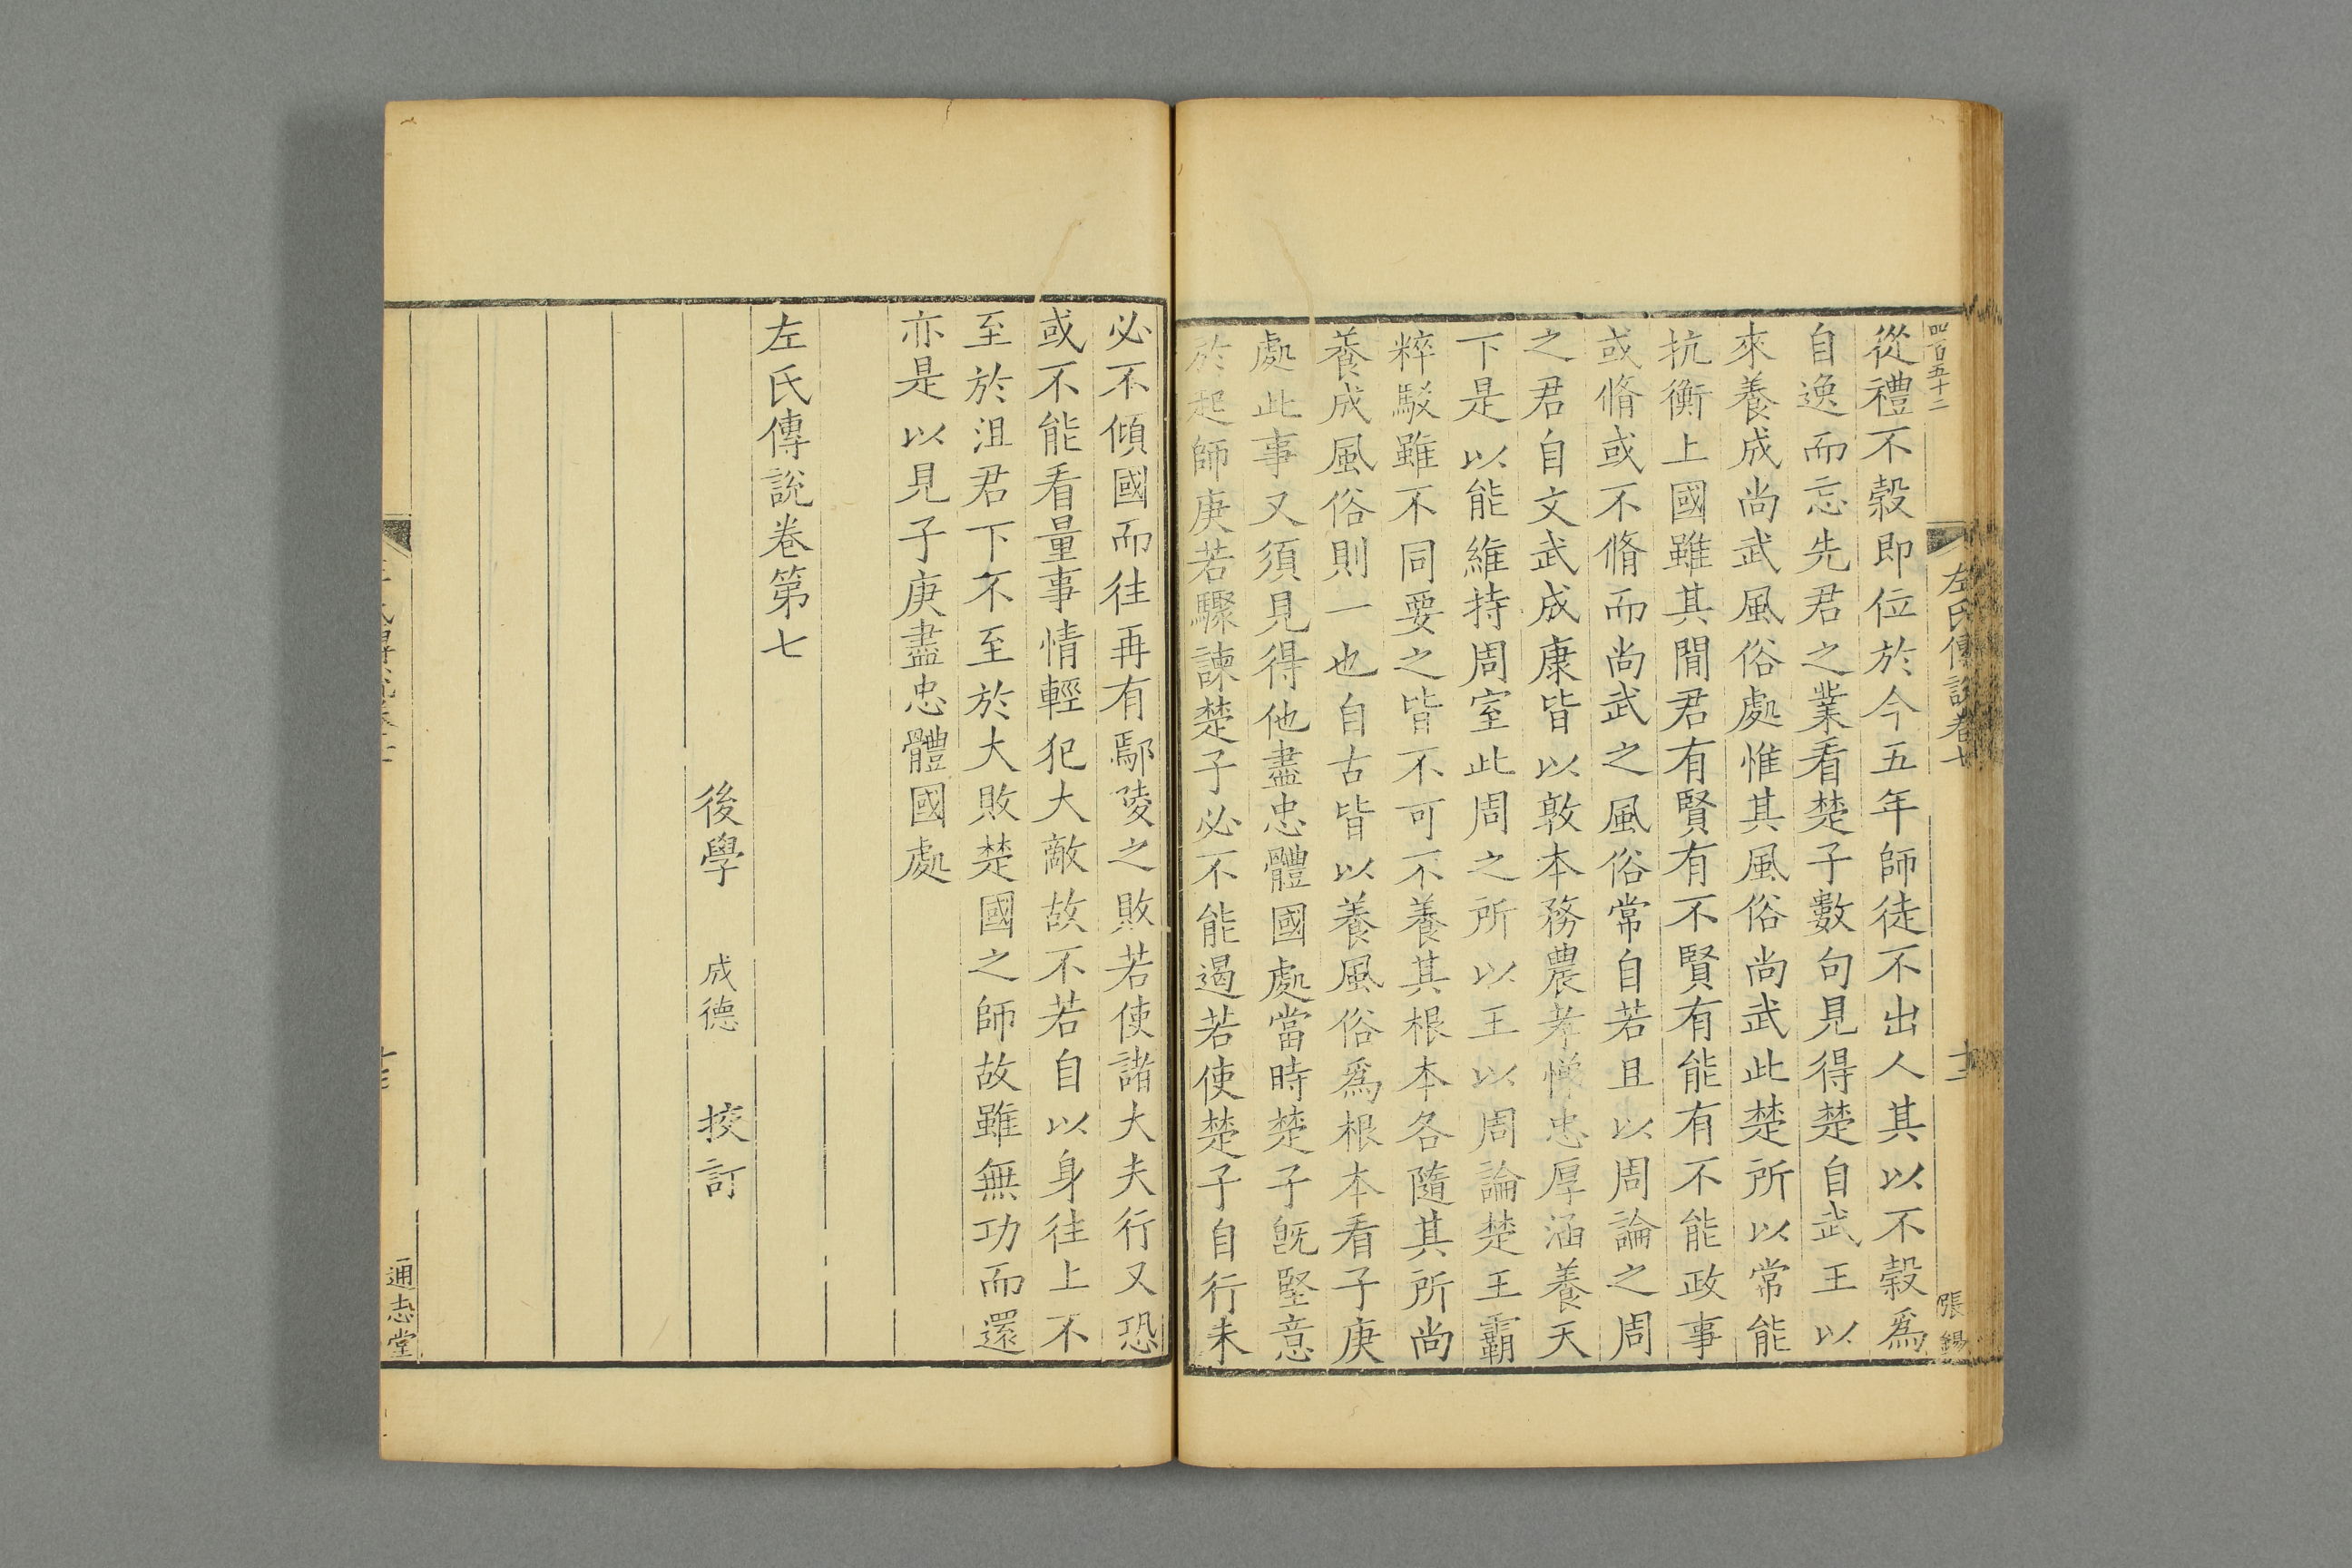 四百五十二
左氏傳說卷七
張錫
從禮不榖即位於今五年師徒不出人其以不榖爲
自逸而忘先君之業看楚子數句見得楚自武王以
來養成尚武風俗處惟其風俗尚武此楚所以常能
抗衡上國雖其閒君有賢有不賢有能有不能政事
或脩或不脩而尚武之風俗常自若且以周論之周
之君自文武成康皆以敦本務農孝悌忠厚涵養天
下是以能維持周室此周之所以王以周論楚王霸
粹駁雖不同要之皆不可不養其根本各隨其所尚
養成風俗則一也自古皆以養風俗爲根本看子庚
處此事又須見得他盡忠體國處當時楚子旣堅意
於起師庚若驟諫楚子必不能遏若使楚子自行未
必不傾國而往再有鄢陵之敗若使諸大夫行又恐
或不能看量事情輕犯大敵故不若自以身往上不
至於沮君下不至於大敗楚國之師故雖無功而還
亦是以見子庚盡忠體國處
左氏傳說卷第七
後學 成德 挍訂
通志堂